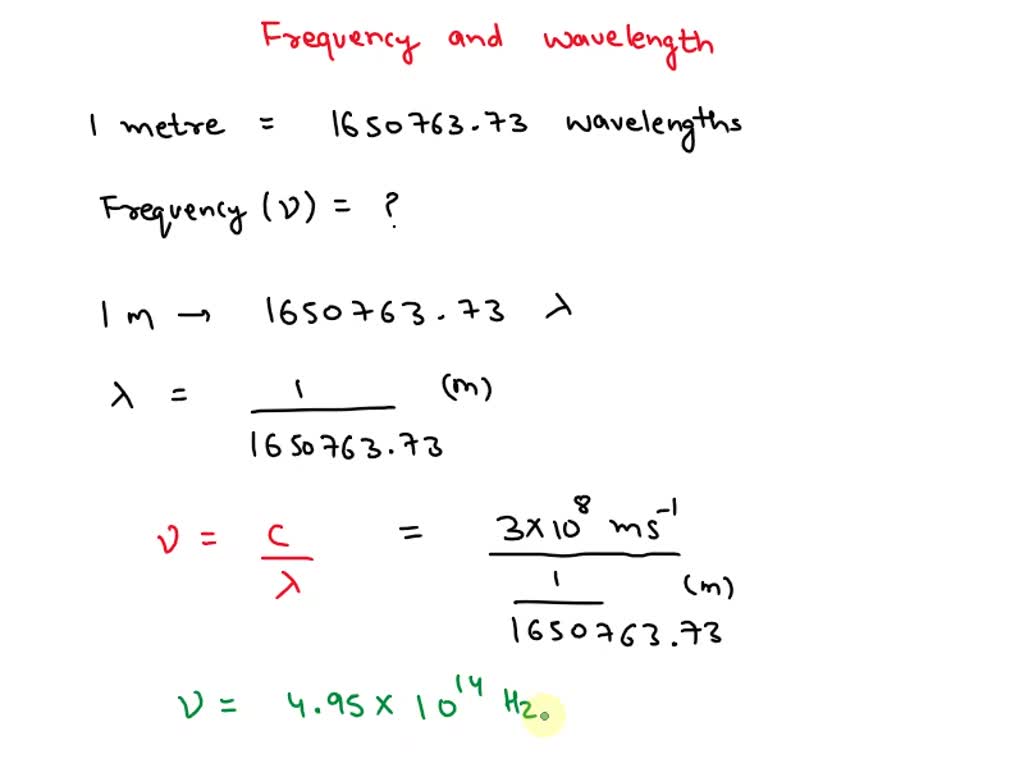 Frequency and wavelength
1 metre = 1650763.73 wavelengths
Frequency (ν) = ?
1 m → 1650763.73 λ
λ = 1 / 1650763.73 (m)
ν = c / λ = 3×10⁸ ms⁻¹ / 1 / 1650763.73 (m)
ν = 4.95 × 10¹⁴ Hz.